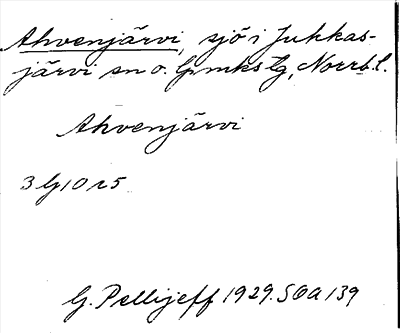 Ahvenjärvi, sjö i Jukkas-
järvi sn o. lpmks tg, Norrb. l.
Ahvenjärvi
G. Pellijeff 1929. SOA 139